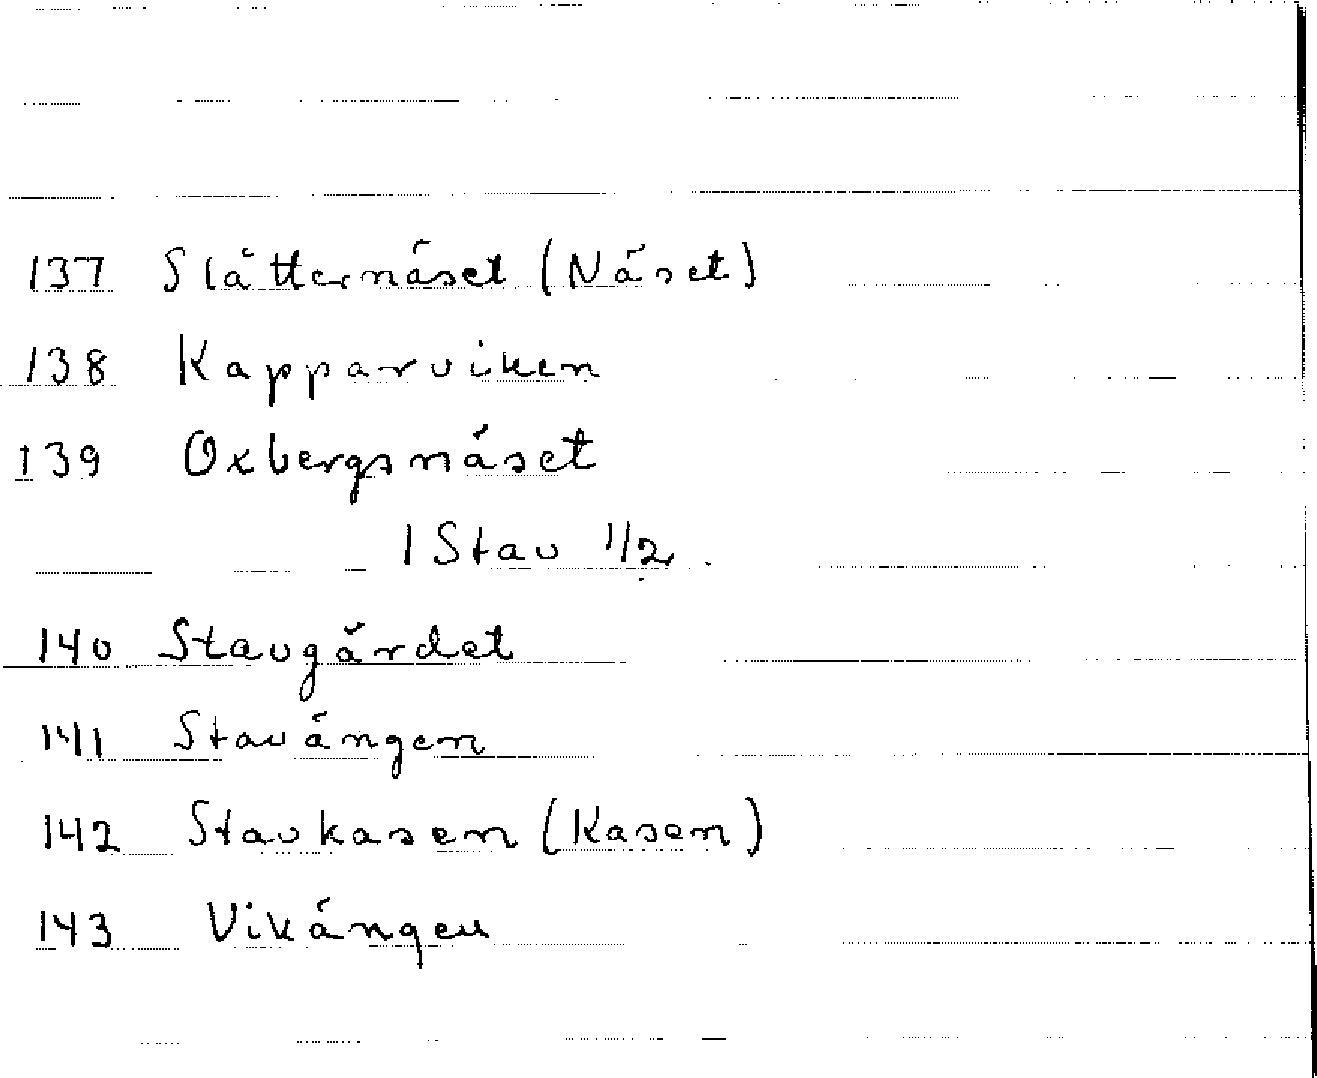 137 Slåtternäset (Näset)
138 Kapparviken
139 Oxbergsnäset
1 Stav 1/2.
140 Stavgärdet
141 Stavängen
142 Stavkasen (Kasen)
143 Vikängen